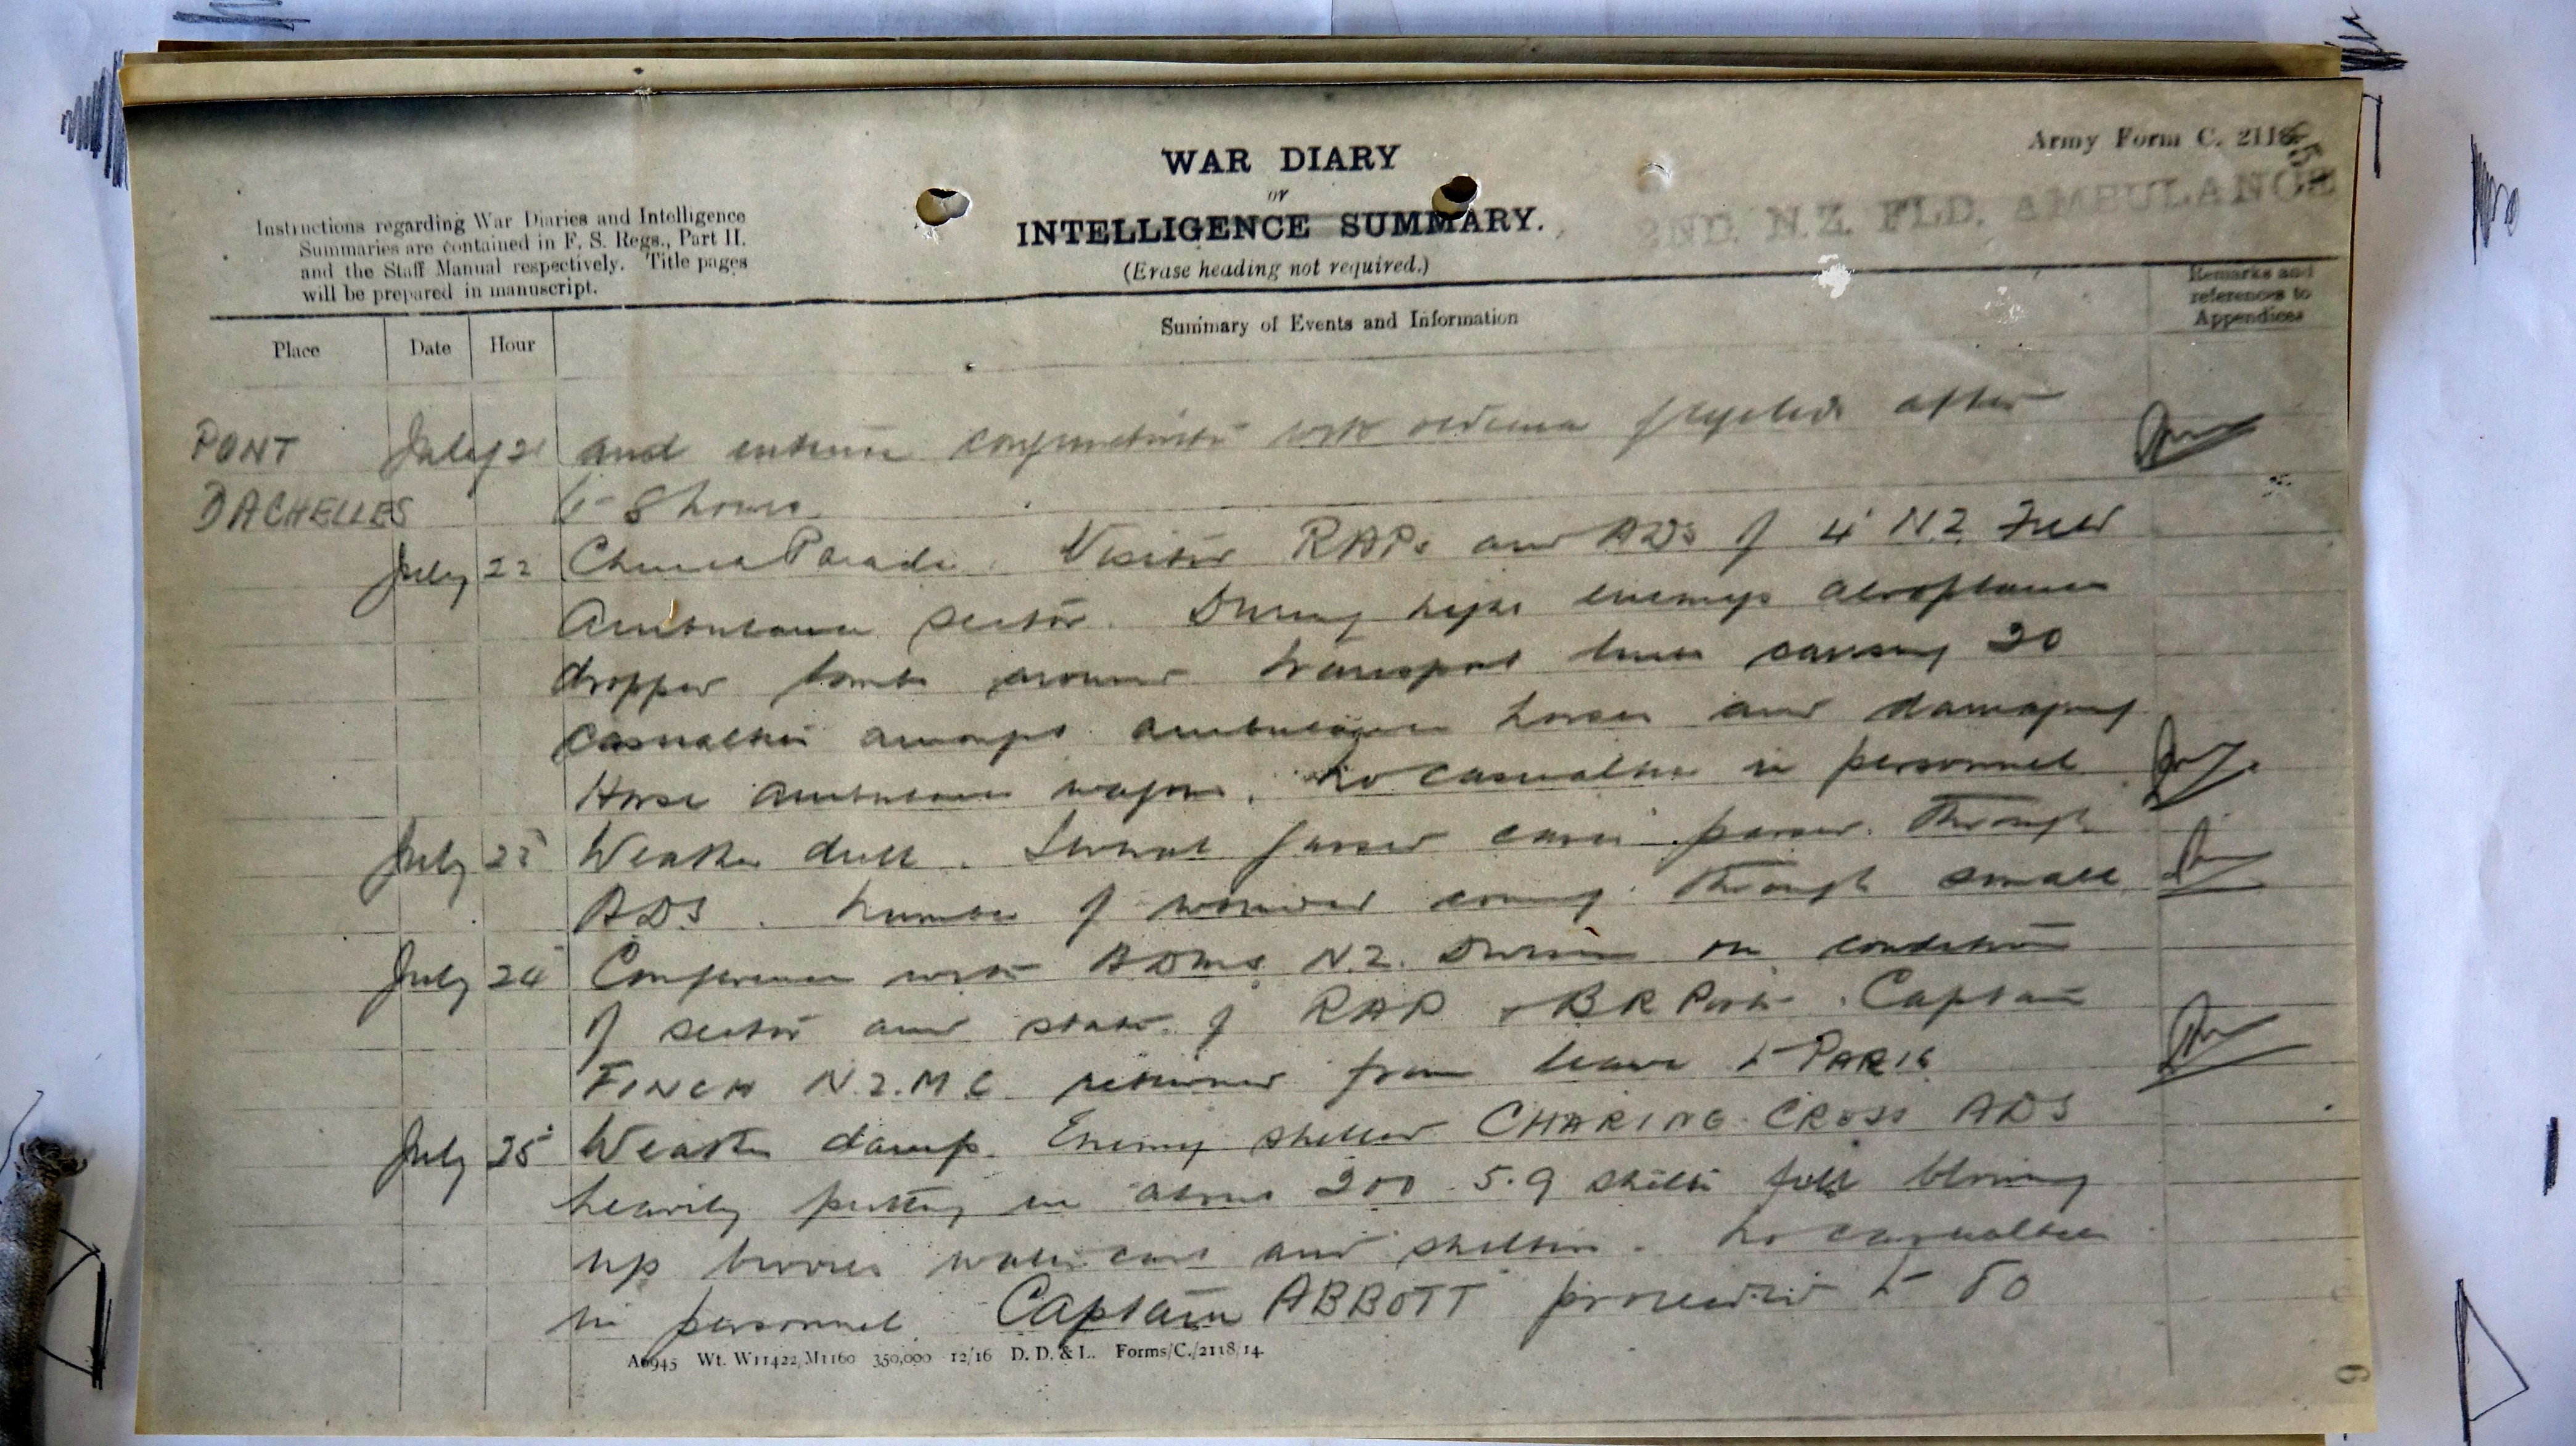 Army Form C. 2118.
WAR DIARY
or
INTELLIGENCE SUMMARY.
(Erase heading not required.)
2ND. N.Z. FLD. AMBULANCE
Instructions regarding War Diaries and Intelligence
Summaries are contained in F. S. Regs., Part II.
and the Staff Manual respectively. Title pages
will be prepared in manuscript.
Place Date Hour
Summary of Events and Information
Remarks and
references to
Appendices
PONT July 21 and intense conjunctivitis with oedema of eyelids after
DACHELLES 6-8 hours
July 22 Church Parade. Visited RAPs and ADS of 4 N.Z. Field
Ambulance sector. During night enemys aeroplanes
dropped bombs around transport lines causing 20
casualties amongst ambulance horses and damaging
Horse ambulance wagons. No casualties in personnel
July 23 Weather dull. Several gassed cases passed through
ADS. Number of wounded coming through small
July 24 Conference with ADMS N.Z. Division on condition
of sector and state of RAP & BR Posts. Captain
FINCH N.Z.M.C. returned from leave to PARIS
July 25 Weather damp. Enemy shelled CHARING CROSS ADS
heavily putting in about 200 5.9 shells blowing
up water cart and shelters. No casualties
in personnel. Captain ABBOTT proceeded to
A6945 Wt. W11422/M1160 350,000 12/16 D. D. & L. Forms/C./2118/14.